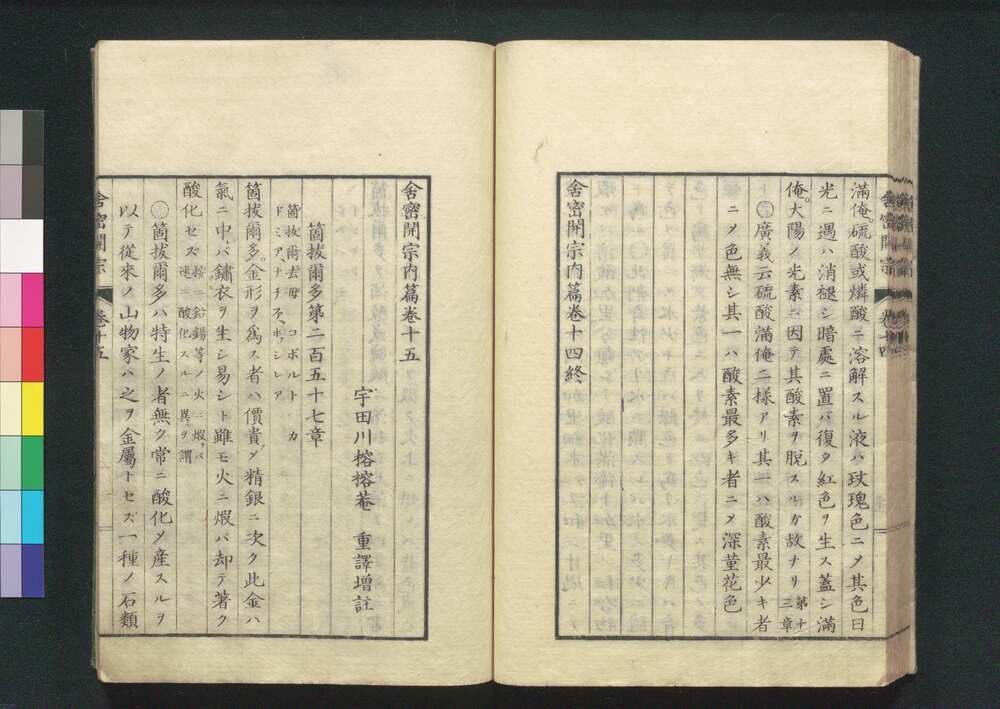 滿俺。硫酸或燐酸ニ溶解スル液ハ玫瑰色ニ〆其色日
光ニ遇ハ消褪シ暗處ニ置バ復タ紅色ヲ生ス蓋シ滿
俺。大陽ノ光素ニ因テ其酸素ヲ脫スルカ故ナリ 第十三章
廣義云硫酸滿俺ニ二樣アリ其一ハ酸素最少キ者
ニ〆色無シ其一ハ酸素最多キ者ニ〆深菫花色
舍密開宗內篇卷十四終
舍密開宗
卷十四
舍密開宗內篇卷十五
宇田川榕榕菴 重譯增註
箇拔爾多第二百五十七章
箇拔爾去母 コボルト・カ
ドミア、ナチ
箇拔爾多。金形ヲ爲ス者ハ價貴〆精銀ニ次ク此金ハ
氣ニ中レバ鏽衣ヲ生シ易シト雖モ火ニ煆バ却テ著ク
酸化セズ 按ニ鉛錫等ノ火ニ煆バ速ニ酸化スルニ異ヲ謂
箇拔爾多ハ特生ノ者無ク常ニ酸化〆産スルヲ
以テ從來ノ山物家ハ之ヲ金屬トセズ一種ノ石類
舍密開宗
卷十五